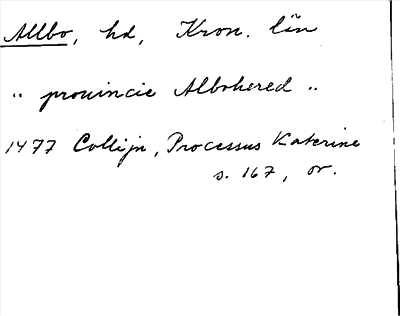 Allbo, hd, Kron. län
„ prouincie Albohered „
1477 Collijn, Processus Katerine
s. 167, or.